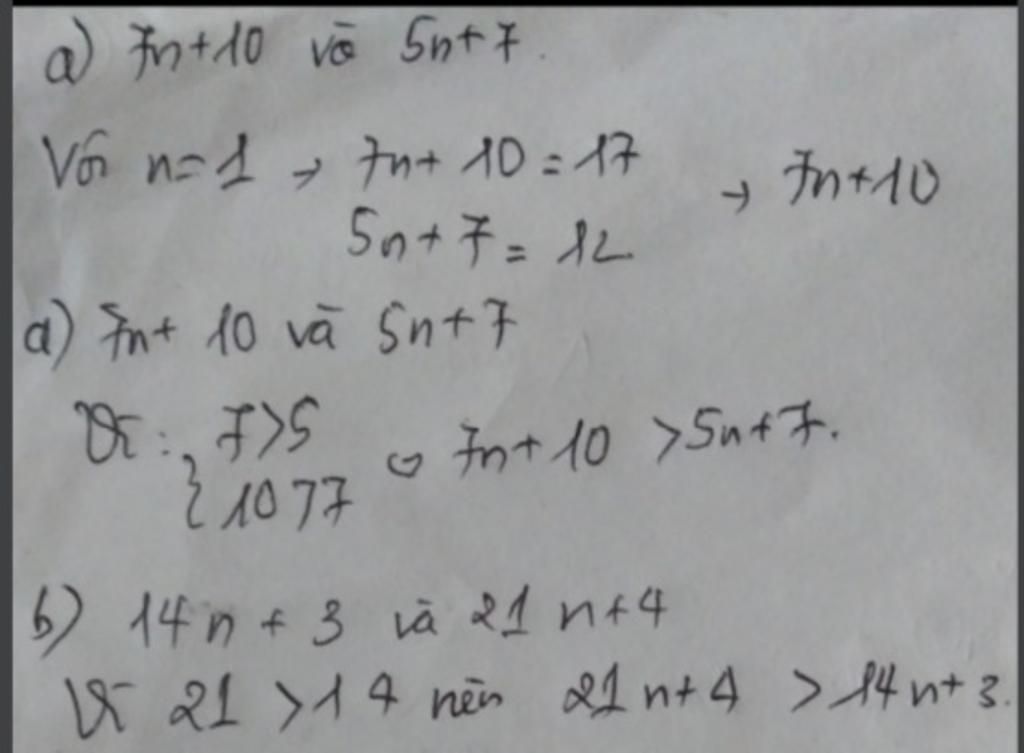 a) 7n+10 và 5n+7.
Với n=1 → 7n+10=17 → 7n+10
5n+7=12
a) 7n+10 và 5n+7
Vì: { 7>5
10>7 → 7n+10 >5n+7.
b) 14n+3 và 21n+4
Vì 21>14 nên 21n+4 >14n+3.